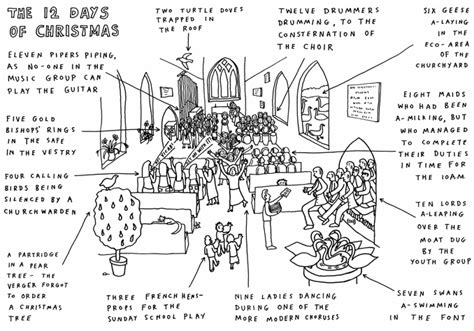 THE 12 DAYS
OF CHRISTMAS
TWO TURTLE DOVES
TRAPPED IN
THE ROOF
TWELVE DRUMMERS
DRUMMING, TO THE
CONSTERNATION OF
THE CHOIR
SIX GEESE
A-LAYING
IN THE
ECO-AREA
OF THE
CHURCHYARD
ELEVEN PIPERS PIPING,
AS NO-ONE IN THE
MUSIC GROUP CAN
PLAY THE GUITAR
FIVE GOLD
BISHOPS' RINGS
IN THE SAFE
IN THE VESTRY
FOUR CALLING
BIRDS BEING
SILENCED BY A
CHURCHWARDEN
A PARTRIDGE
IN A PEAR
TREE - THE
VERGER FORGOT
TO ORDER
A CHRISTMAS
TREE
THREE FRENCH HENS-
PROPS FOR THE
SUNDAY SCHOOL PLAY
NINE LADIES DANCING
DURING ONE OF THE
MORE MODERN CHORUSES
EIGHT MAIDS
WHO HAD BEEN
A-MILKING, BUT
WHO MANAGED
TO COMPLETE
THEIR DUTIES
IN TIME FOR
THE 10AM
TEN LORDS
A-LEAPING
OVER THE
MOAT DUG
BY THE
YOUTH GROUP
SEVEN SWANS
A-SWIMMING
IN THE FONT